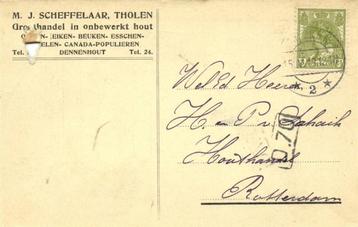 M. J. SCHEFFELAAR, THOLEN
Gro handel in onbewerkt hout
EIKEN- BEUKEN- ESSCHEN-
ELEN- CANADA-POPULIEREN
Tel. DENNENHOUT Tel. 24.
WelEd Heeren
H. P. v
Houthandel
Rotterdam
0.70
2